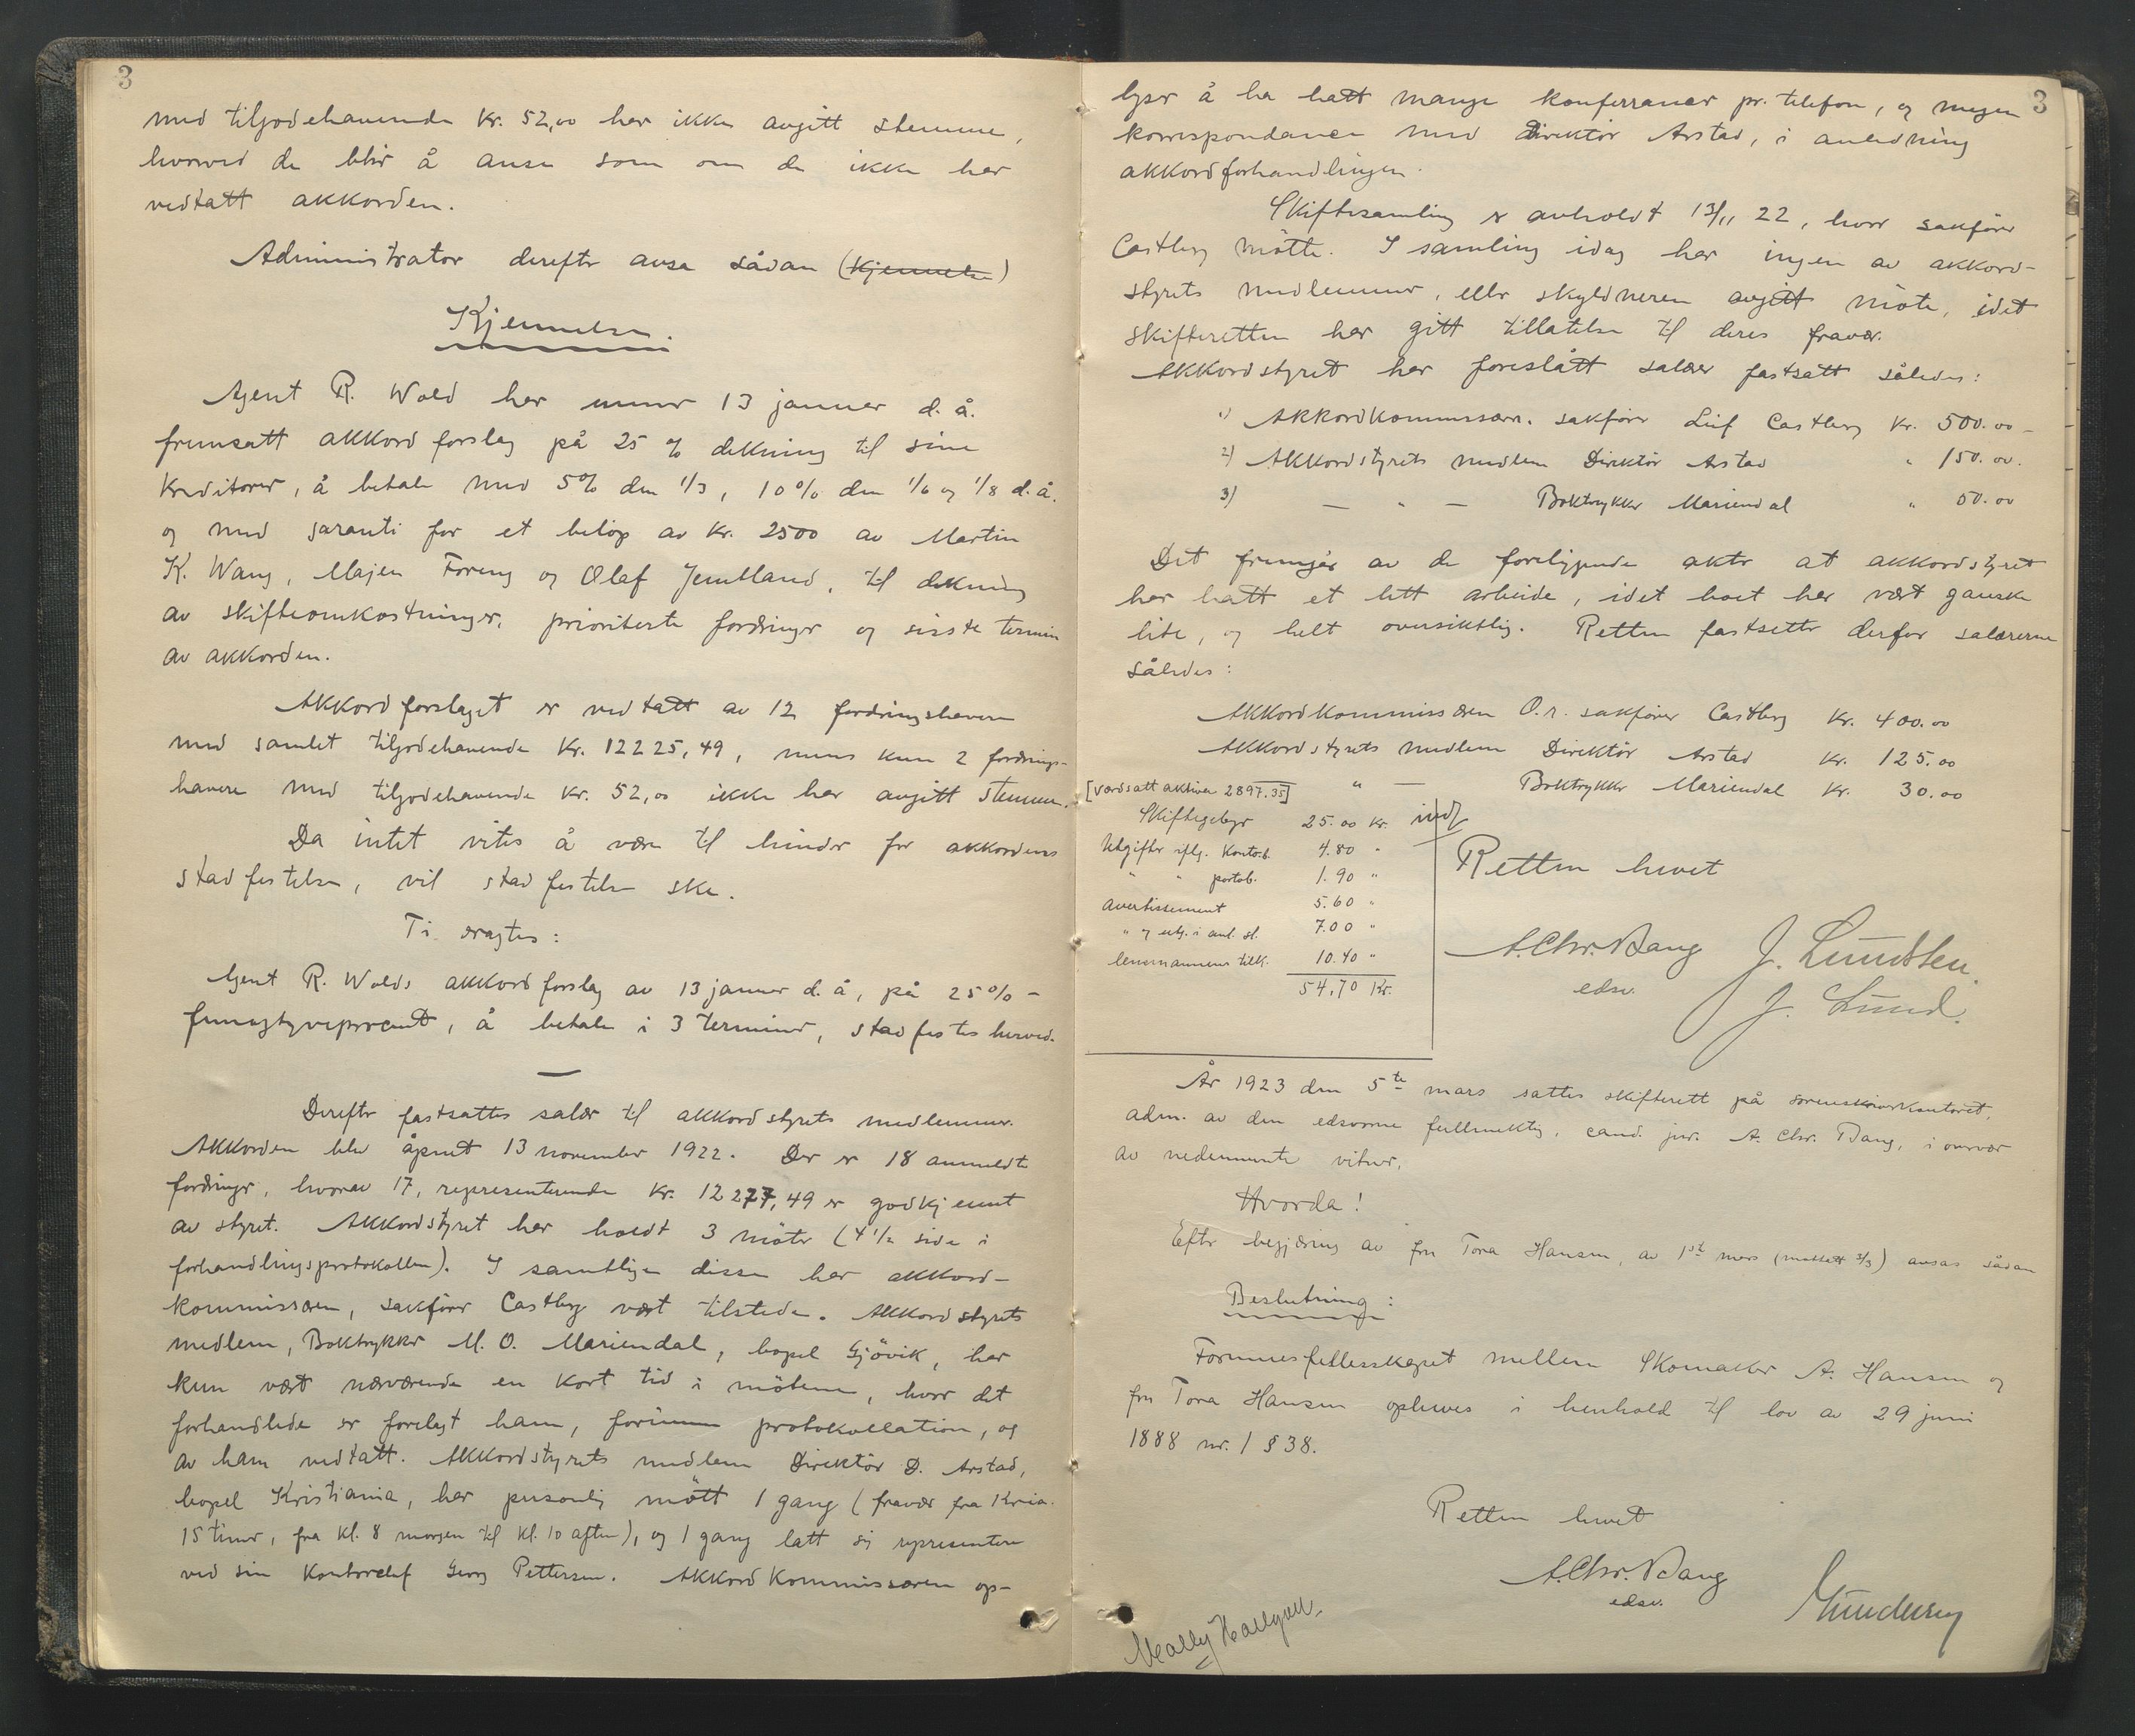 3
med tilgodehavende kr. 52,00 har ikke avgitt stemme,
hvorved de blir å anse som om de ikke har
vedtatt akkorden.
Administrator derefter avsa sådan (Kjennelse)
Kjennelse.
Agent R. Wold har under 13 januar d. å.
fremsatt akkordforslag på 25 % dekning til sine
kreditorer, å betale med 5% den 1/3, 10% den 1/6 og 1/8 d. å.
og med garanti for et beløp av kr. 2500 av Martin
K. Wang, Majen Foreng og Olaf Jemtland, til dekning
av skifteomkostninger, prioriterte fordringer og siste termin
av akkorden.
Akkordforslaget er vedtatt av 12 fordringshavere
med samlet tilgodehavende kr. 12225,49, mens kun 2 fordrings-
havere med tilgodehavende kr. 52,00 ikke har avgitt stemme.
Da intet vites å være til hinder for akkordens
stadfestelse, vil stadfestelse ske.
Ti eragtes:
Agent R. Wolds akkordforslag av 13 januar d. å, på 25% -
femogtyveprocent, å betale i 3 terminer, stadfestes herved.
Derefter fastsattes salær til akkordstyrets medlemmer.
Akkorden blev åpnet 13 november 1922. Der er 18 anmeldte
fordringer, hvorav 17, representerende kr. 12277,49 er godkjennt
av styret. Akkordstyret har holdt 3 møter (4 1/2 side i
forhandlingsprotokollen). I samtlige disse har akkord-
kommissæren, sakfører Castberg vært tilstede. Akkordstyrets
medlem, Boktrykker M. O. Mariendal, bopel Gjövik, har
kun vært nærværende en kort tid i møtene, hvor det
forhandlede er forelagt ham, forinnen protokollation, og
av ham vedtatt. Akkordstyrets medlem Direktör D. Arstad,
bopel Kristiania, har personlig møtt 1 gang (fravær fra Kr.ia.
15 timer, fra kl. 8 morgen til kl. 10 aften), og 1 gang latt sig representere
ved sin kontorchef Georg Pettersen. Akkordkommissæren op-
3
lyser å ha hatt mange konferanser pr. telefon, og megen
korrespondance med direktør Arstad, i anledning
akkordforhandlingen.
Skiftesamling er avholdt 13/11 22, hvor sakfører
Castberg møtte. I samling idag har ingen av akkord-
styrets medlemmer, eller skyldneren avgitt møte, idet
skifteretten har gitt tillatelse til deres fravær.
Akkordstyret har foreslått salær fastsatt således:
1) Akkordkommissær. sakfører Leif Castberg kr. 500.00 -
2) Akkordstyrets medlem Direktör Arstad " 150.00.
3) — " — Boktrykker Mariendal " 50.00
Det fremgår av de foreliggende akter at akkordstyret
har hatt et lett arbeide, idet boet har vært ganske
lite, og helt oversiktlig. Retten fastsetter derfor salærerne
således:
Akkordkommissæren O.r. sakfører Castberg kr. 400.00
Akkordstyrets medlem Direktör Arstad kr. 125.00
" — Boktrykker Mariendal kr. 30.00
[Verdsatt aktiva 2897.35]
Skiftegebyr 25.00 kr.
Utgifter iflg. Kontob. 4.80 "
" " portob. 1.90 "
Avertissement 5.60 "
" og utg. i anl. sl. 7.00 "
lensmannens tilk. 10.40 "
54,70 Kr.
Retten hevet
A. Chr. Bang
edsv.
J. Lundsten.
J. Lund.
År 1923 den 5te mars sattes skifterett på sorenskriverkontoret,
adm. av den edsvorne fullmektig, cand. jur. A. Chr. Bang, i overvær
av nedennevnte vitner.
Hvorda!
Efter begjæring av fru Tora Hansen, av 1ste mars (mottatt 3/3) avsas sådan
Beslutning:
Formuesfellesskapet mellem Skomaker A. Hansen og
fru Tora Hansen ophæves i henhold til lov av 29 juni
1888 nr. 1 § 38.
Retten hevet
A. Chr. Bang
edsv.